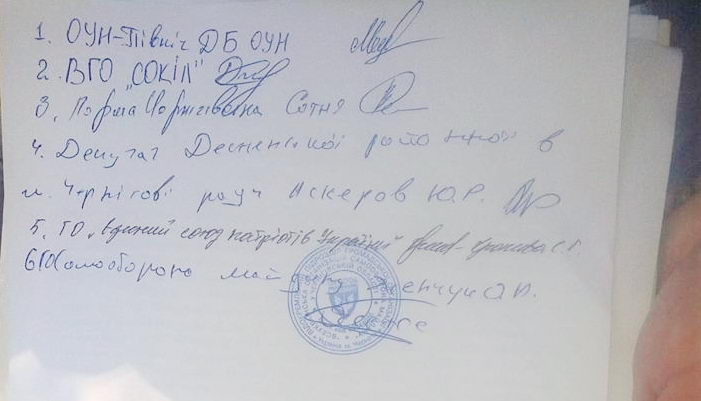 1. ОУН-Північ ДБ ОУН
2. ВГО „СОКІЛ"
3. Перша Чернігівська Сотня
4. Депутат Деснянської районної в
м. Чернігові ради Аскеров Ю.Р.
5. ГО „Єдиний союз патріотів України"
6 ГО Самооборона Майдану